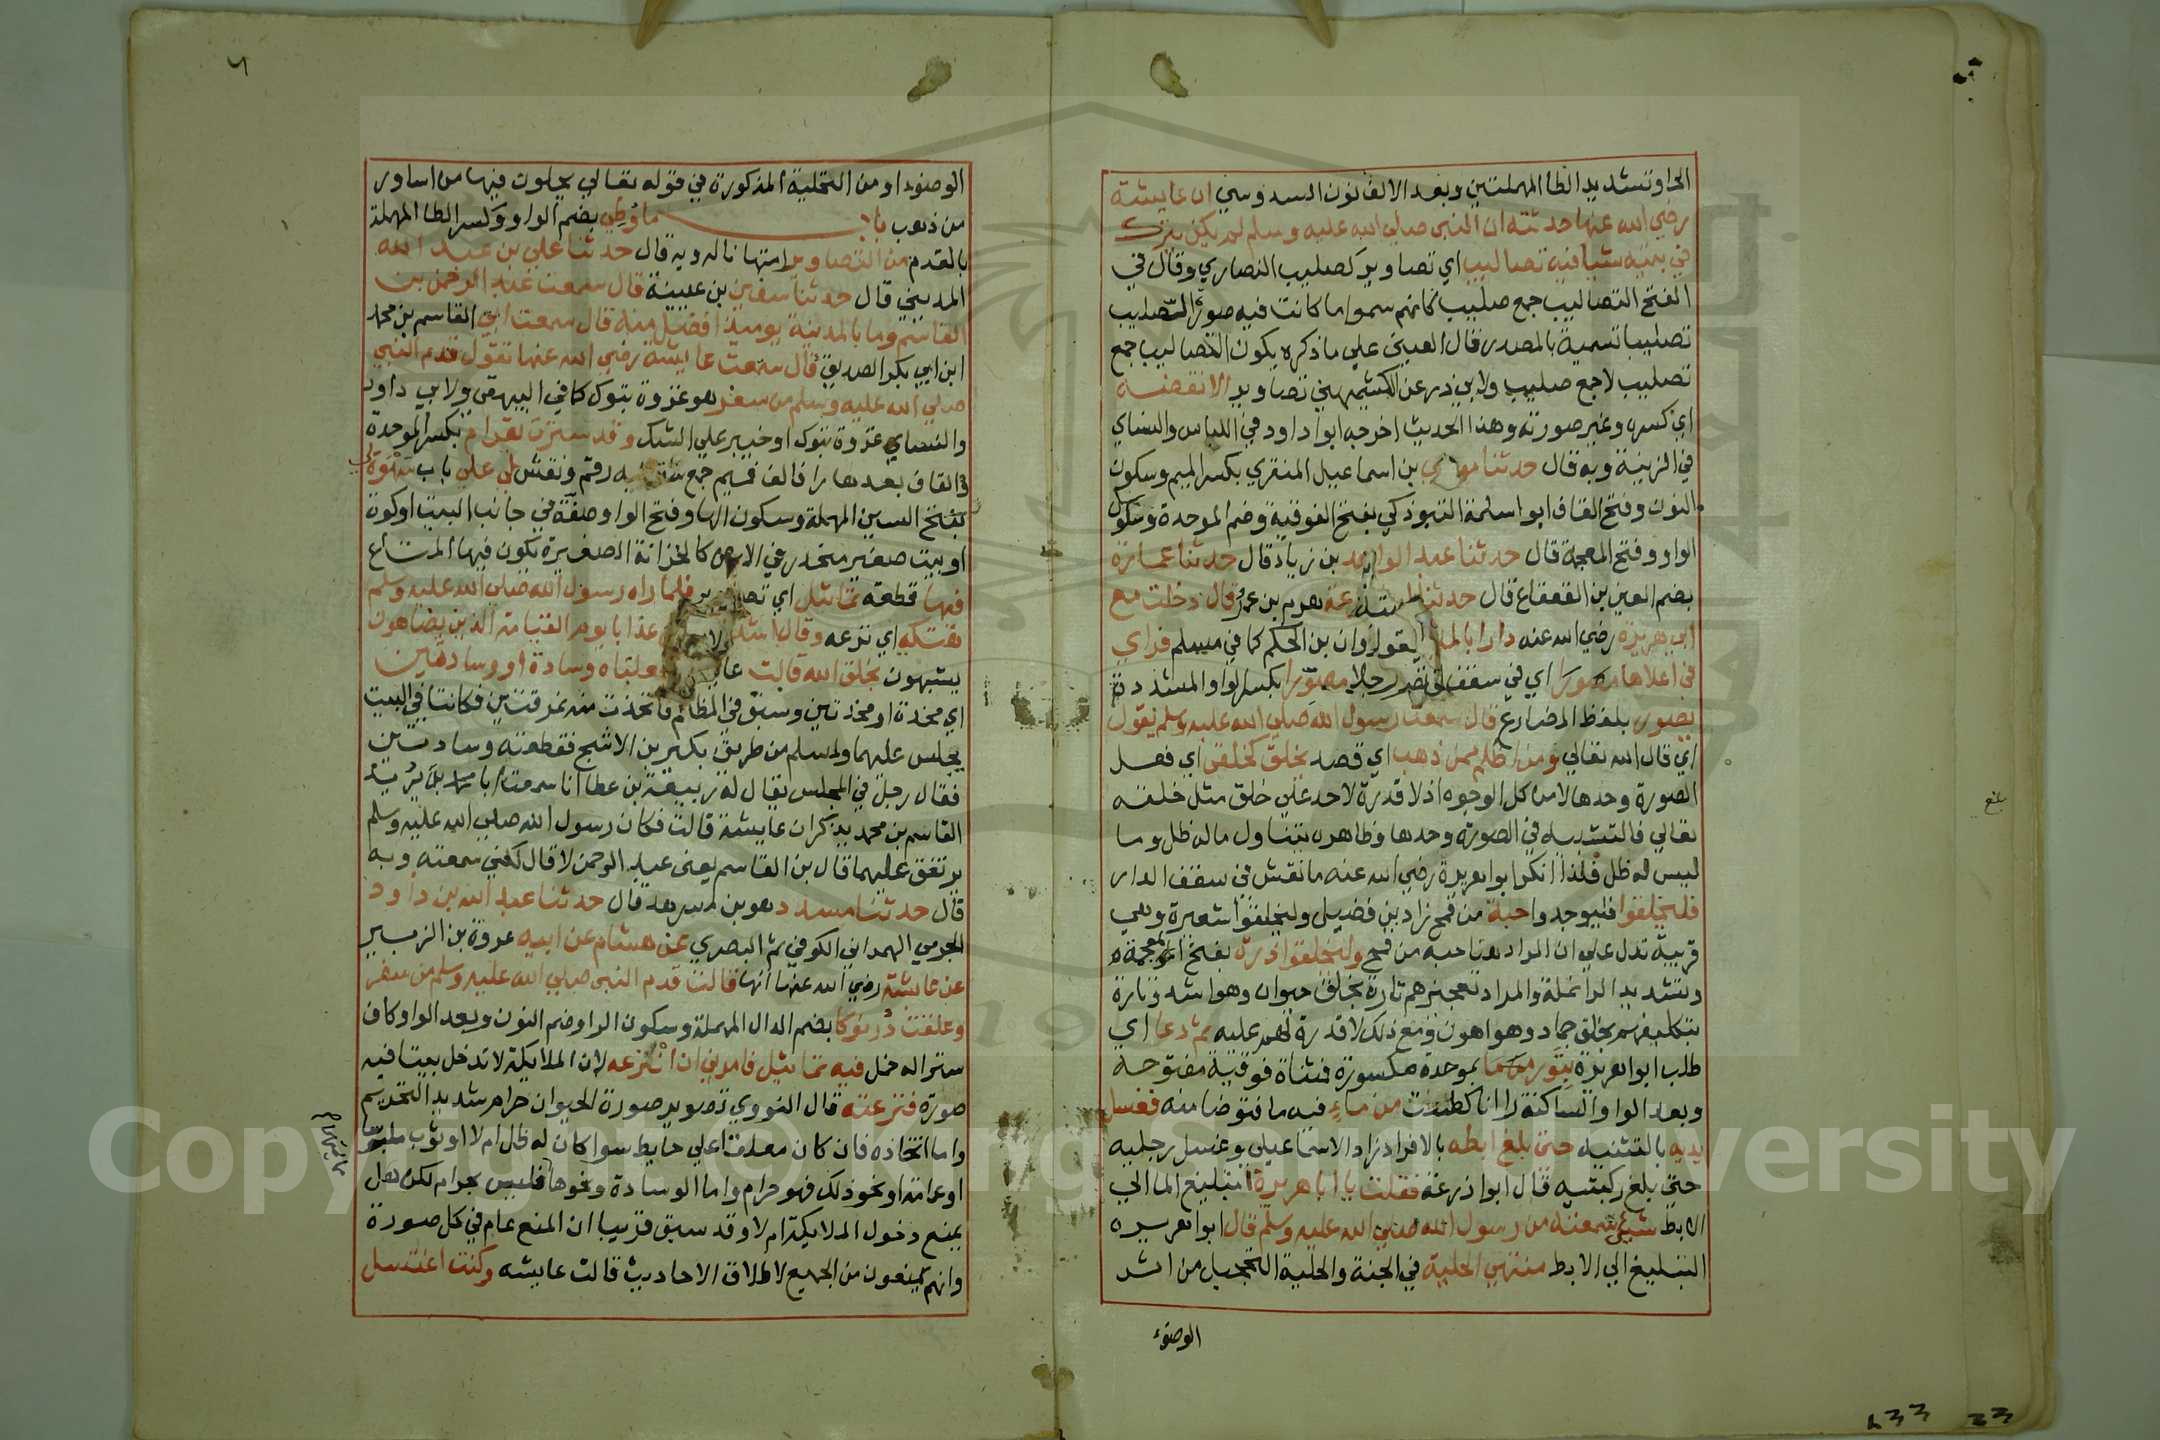 الحا وتشديد الطا المهملتين وبعد الالف نون السدوسي ان عايشة
رضي الله عنها حدثته ان النبي صلي الله عليه وسلم لم يكن يترك
في بيته شيا فيه تصاليب اي تصاوير كصليب النصاري وقال في
الفتح التصاليب جمع صليب كانهم سموا ما كانت فيه صورة التصليب
تصليبا تسمية بالمصدر قال العيني علي ما ذكره يكون التصاليب جمع
تصليب لا جمع صليب ولابن ذر عن الكشميهني تصاوير الا نقضه
اي كسره وغير صورته وهذا الحديث اخرجه ابو داود في اللباس والنساي
في الزينة وبه قال حدثنا موسي بن اسماعيل المنقري بكسر الميم وسكون
النون وفتح القاف ابو سلمة التبوذكي بفتح الفوقية وضم الموحدة وسكون
الواو وفتح المعجمة قال حدثنا عبد الواحد بن زياد قال حدثنا عمارة
بضم العين بن القعقاع قال حدثنا زرعة هرم بن عمرو قال دخلت مع
ابي هريرة رضي الله عنه دارا بالمدينة لمروان بن الحكم كما في مسلم فراي
في اعلاها مصورا اي في سقف رجلا مصورا بكسر الواو المشددة
يصور بلفظ المضارع قال سمعت رسول الله صلي الله عليه وسلم يقول
اي قال الله تعالي ومن اظلم ممن ذهب اي قصد يخلق كخلقي اي فعل
الصورة وحدها لا من كل الوجوه اذ لا قدرة لاحد علي خلق مثل خلقه
تعالي فالتشبيه في الصورة وحدها وظاهره يتناول ماله ظل وما
ليس له ظل فلذا انكر ابو هريرة رضي الله عنه ما نقش في سقف الدار
فليخلقوا فليوجدوا حبة من قمح زاد بن فضيل وليخلقوا شعيرة وهي
قرينة تدل علي ان المراد هنا حبه من قمح وليخلقوا ذرة بفتح المعجمة
وتشديد الرا نملة والمراد تعجيزهم تارة بخلق حيوان وهو اشد وتارة
بتكليفهم بخلق جماد وهو اهون ومع ذلك لا قدرة لهم عليه ثم دعا اي
طلب ابو هريرة بتور من ما بموحدة مكسورة فمثناة فوقية مفتوحة
وبعد الواو الساكنة را انا كطست من ماء فيه ما فتوضا منه فغسل
يديه بالتثنيه حتي بلغ ابطه بالافراد زاد الاسماعيلي وغسل رجليه
حتي بلغ ركبتيه قال ابو زرعة فقلت يا ابا هريرة اتبليغ الما الي
الابط شيئ سمعته من رسول الله صلي الله عليه وسلم قال ابو هريره
التبليغ الي الابط منتهي الحلية في الجنة والحلية التحجيل من اثر
الوضوء
بلغ
الوضوء او من التحلية المذكورة في قوله تعالي يحلون فيها من اساور
من ذهب باب ما وطي بضم الواو وكسر الطا المهملة
بالقدم من التصاوير امتهانا له وبه قال حدثنا علي بن عبد الله
المديني قال حدثنا سفين بن عيينة قال سمعت عبد الرحمن بن
القاسم وما بالمدينة يوميذ افضل منه قال سمعت ابي القاسم بن محمد
ابن ابي بكر الصديق قال سمعت عايشة رضي الله عنها تقول قدم النبي
صلي الله عليه وسلم من سفر هو غزوة تبوك كما في البيهقي ولابي داود
والنساي غزوة تبوك او خيبر علي الشك وقد سترت بقرام بكسر الموحدة
والقاف بعدها را فالف فميم فيه رقم ونقش لي علي باب سهوة
بفتح السين المهملة وسكون الها وفتح الواو صفة في جانب البيت او كوة
او بيت صغير منحدر في الارض كالخزانة الصغيرة يكون فيها المتاع
فيها قطعة تماثيل اي تصاوير فلما راه رسول الله صلي الله عليه وسلم
هتكه اي نزعه وقال اشد عذابا يوم القيامة الذين يضاهون
يشبهون بخلق الله قالت فجعلناه وسادة او وسادتين
اي مخدة او مخدتين وسبق في المظالم فاتخذت منه نمرقتين فكانتا في البيت
يجلس عليهما ولمسلم من طريق بكير بن الاشج فقطعته وسادتين
فقال رجل في المجلس يقال له ربيعة بن عطا انا سمعت ابا يريد
القاسم بن محمد يذكر ان عايشة قالت فكان رسول الله صلي الله عليه وسلم
يرتفق عليهما قال بن القاسم يعني عبد الرحمن لا قال لكني سمعته وبه
قال حدثنا مسدد هو بن مسرهد قال حدثنا عبد الله بن داود
الخرمي الهمداني الكوفي ثم البصري عن هشام عن ابيه عروة بن الزبير
عن عايشة رضي الله عنها انها قالت قدم النبي صلي الله عليه وسلم من سفر
وعلقت درنوكا بضم الدال المهملة وسكون الرا وضم النون وبعد الواو كاف
ستر اله خمل فيه تماثيل فامرني ان انزعه لان الملايكة لا تدخل بيتا فيه
صورة فنزعته قال النووي تصوير صورة الحيوان حرام شديد التحريم
واما اتخاذه فان كان معلقا علي حايط سوا كان له ظل ام لا او ثوب ملبوسا
او عمامة او نحو ذلك فهو حرام واما الوسادة ونحوها فليس بحرام لكن هل
يمنع دخول الملايكة ام لا وقد سبق قريبا ان المنع عام في كل صورة
وانهم يمتنعون من الجميع لاطلاق الاحاديث قالت عايشه وكنت اغتسل
Copyright © King Saud University